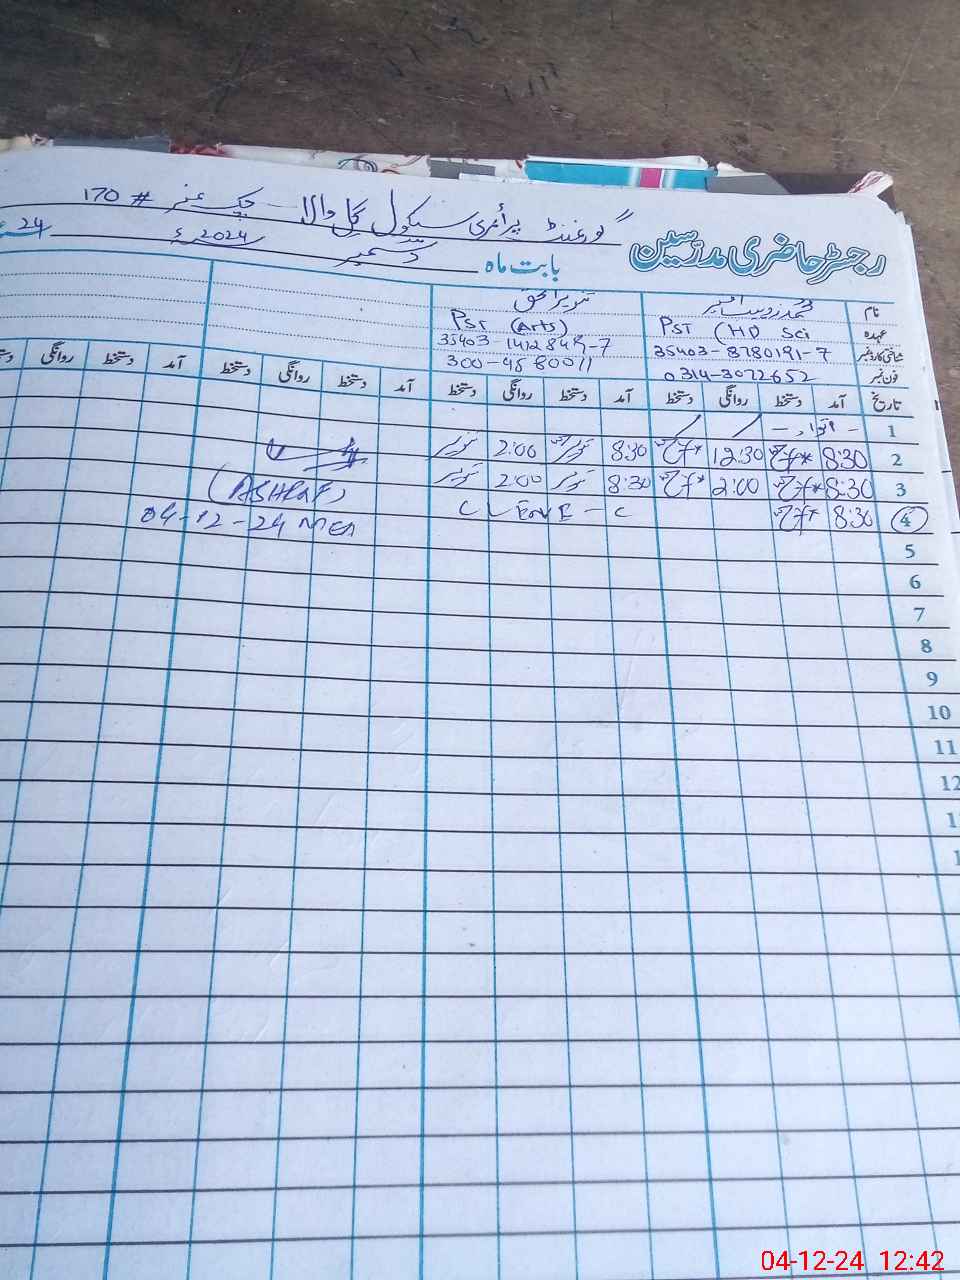 گورنمنٹ پرائمری سکول گل والا - چک نمبر # 170
رجسٹر حاضری مدرسین
بابت ماہ دسمبر 2024ء 24
نام محمد زوہیب تنویر الحق
عہدہ PST (HD Sci PST (Arts)
شناختی کارڈ نمبر 35403-8780191-7
فون نمبر 0314-3072652 300-4580011
تاریخ آمد دستخط روانگی دستخط آمد دستخط روانگی دستخط آمد دستخط روانگی دستخط آمد دستخط روانگی
1 - اتوار - / /
2 8:30 12:30 8:30 تنویر 2:00 تنویر
3 8:30 2:00 8:30 تنویر 2:00 تنویر (ASHRAF)
4 8:30 C LEAVE - C 04-12-24 MEA
5
6
7
8
9
10
11
12
04-12-24 12:42